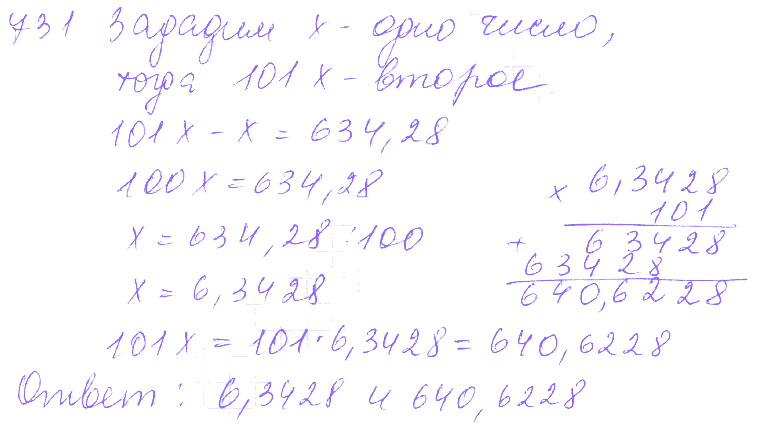 731 Зададим х - одно число,
тогда 101 х - второе
101 х - х = 634,28
100 х = 634,28
х = 634,28 : 100
х = 6,3428
× 6,3428
101
+ 63428
63428
640,6228
101 х = 101 · 6,3428 = 640,6228
Ответ : 6,3428 и 640,6228